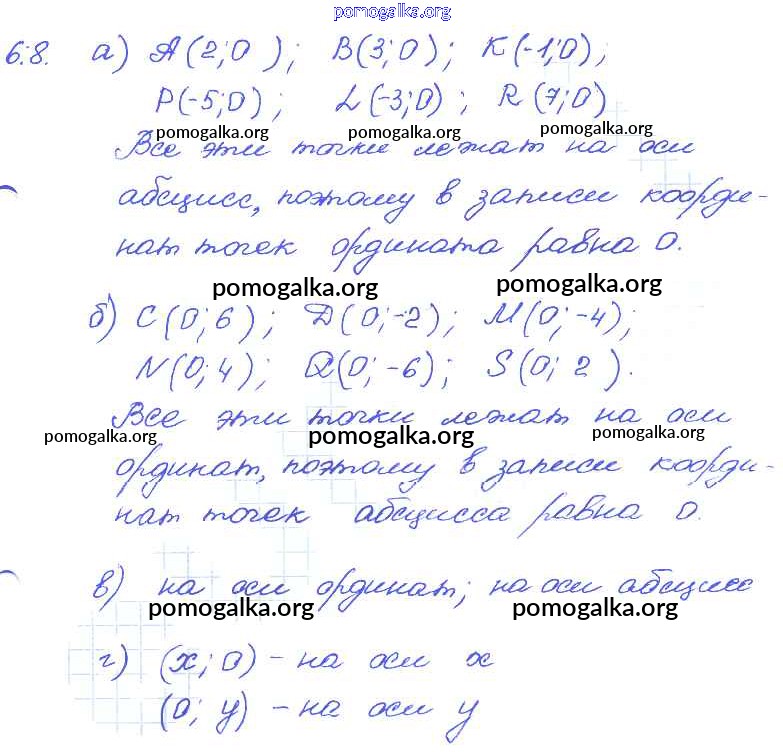 pomogalka.org
6.8. а) A(2;0); B(3;0); K(-1;0);
P(-5;0); L(-3;0); R(7;0)
pomogalka.org pomogalka.org pomogalka.org
Все эти точки лежат на оси
абсцисс, поэтому в записи коорди-
нат точек ордината равна 0.
pomogalka.org pomogalka.org
б) C(0;6); D(0;-2); M(0;-4);
N(0;4); Q(0;-6); S(0;2).
Все эти точки лежат на оси
pomogalka.org pomogalka.org pomogalka.org
ординат, поэтому в записи коорди-
нат точек абсцисса равна 0.
в) на оси ординат; на оси абсцисс
pomogalka.org pomogalka.org
г) (x; 0) - на оси x
(0; y) - на оси y